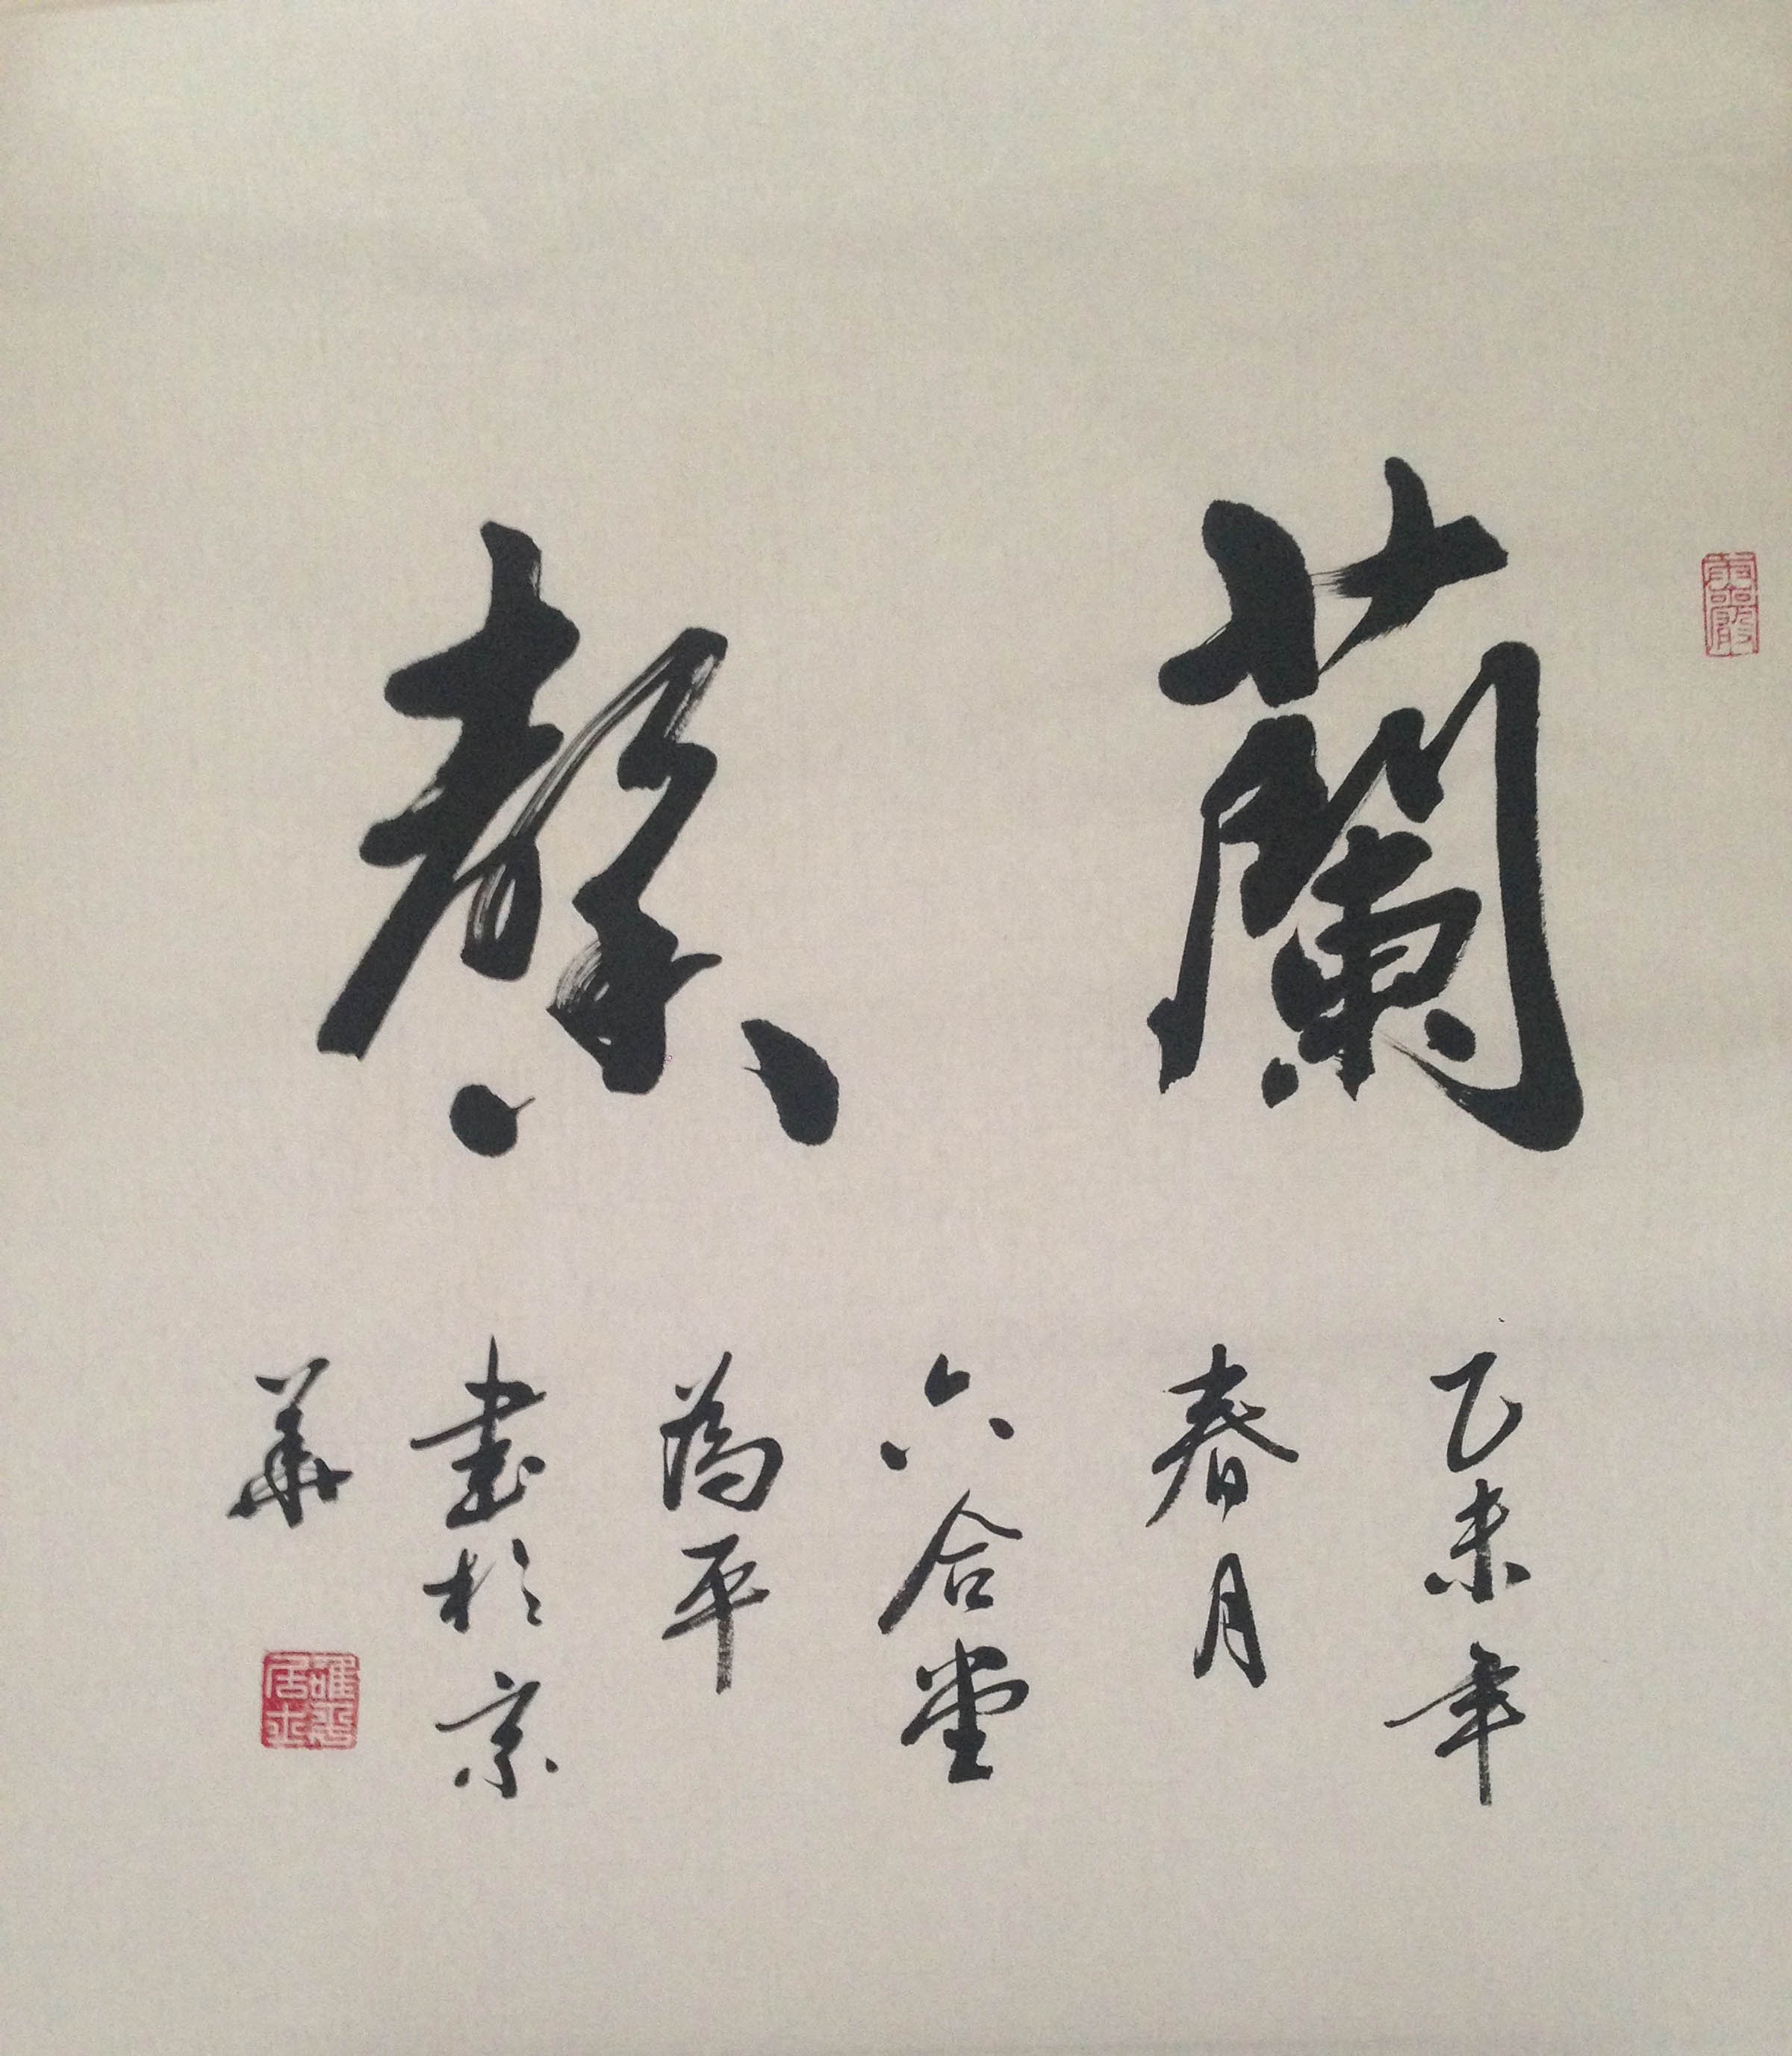 蘭馨
乙未年
春月
六合堂
為平
書於京
華